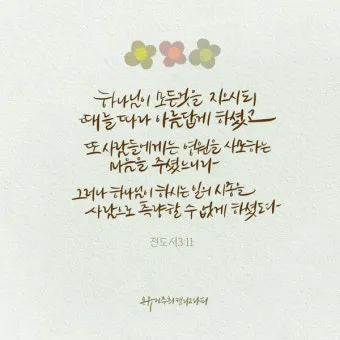 하나님이 모든것을 지으시되
때를 따라 아름답게 하셨고
또 사람들에게는 영원을 사모하는
마음을 주셨느니라
그러나 하나님이 하시는 일의 시종을
사람으로 측량할 수 없게 하셨도다
전도서3:11